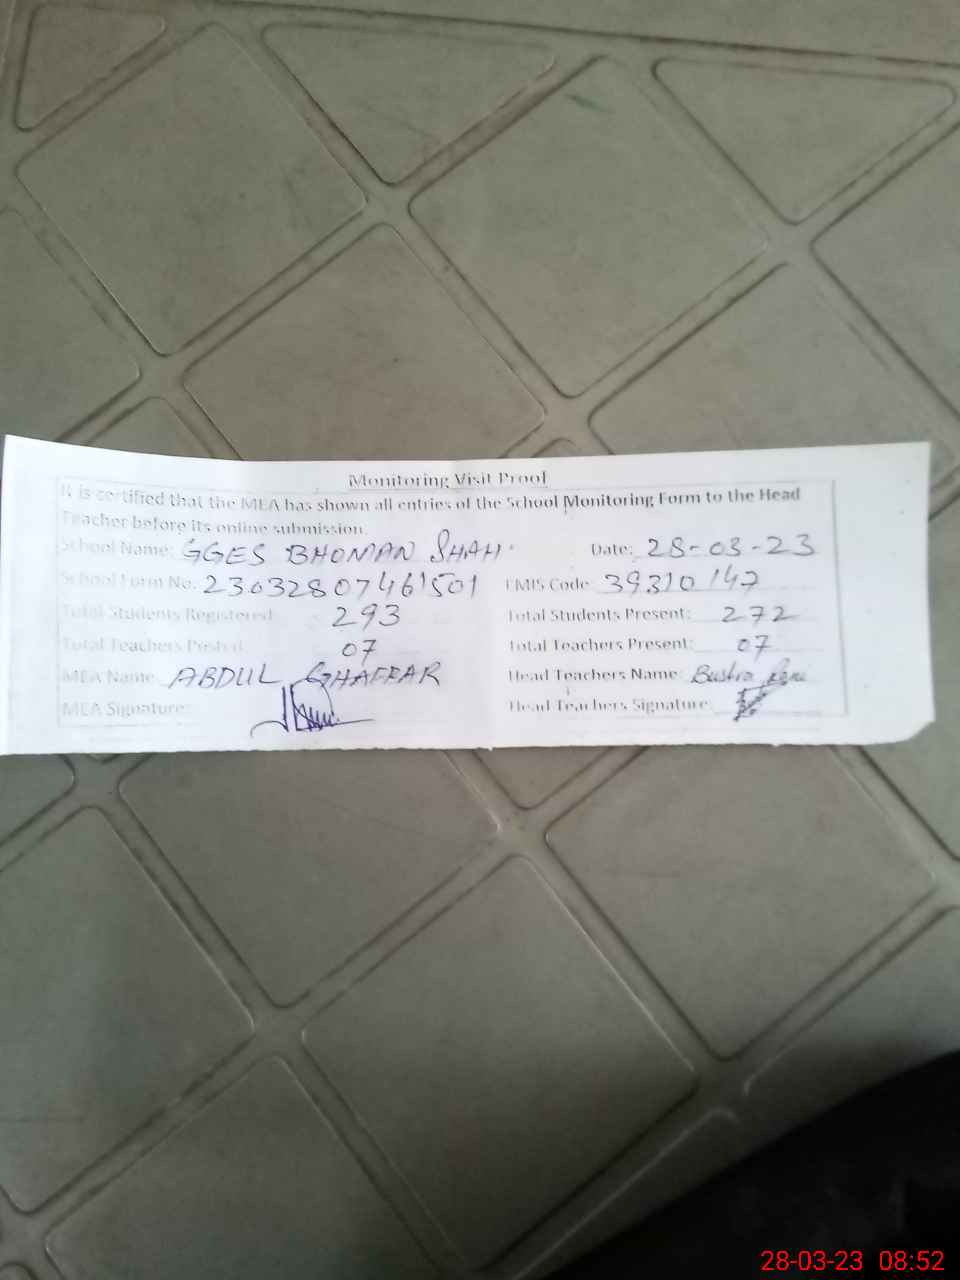 Monitoring Visit Proof
It is certified that the MEA has shown all entries of the School Monitoring Form to the Head
Teacher before its online submission.
School Name: GGES BHOMAN SHAH. Date: 28-03-23
School Form No: 23032807461501 EMIS Code: 39310147
Total Students Registered: 293 Total Students Present: 272
Total Teachers Posted: 07 Total Teachers Present: 07
MEA Name: ABDUL GHAFFAR Head Teachers Name: Bushra
MEA Signature: Head Teachers Signature:
28-03-23 08:52